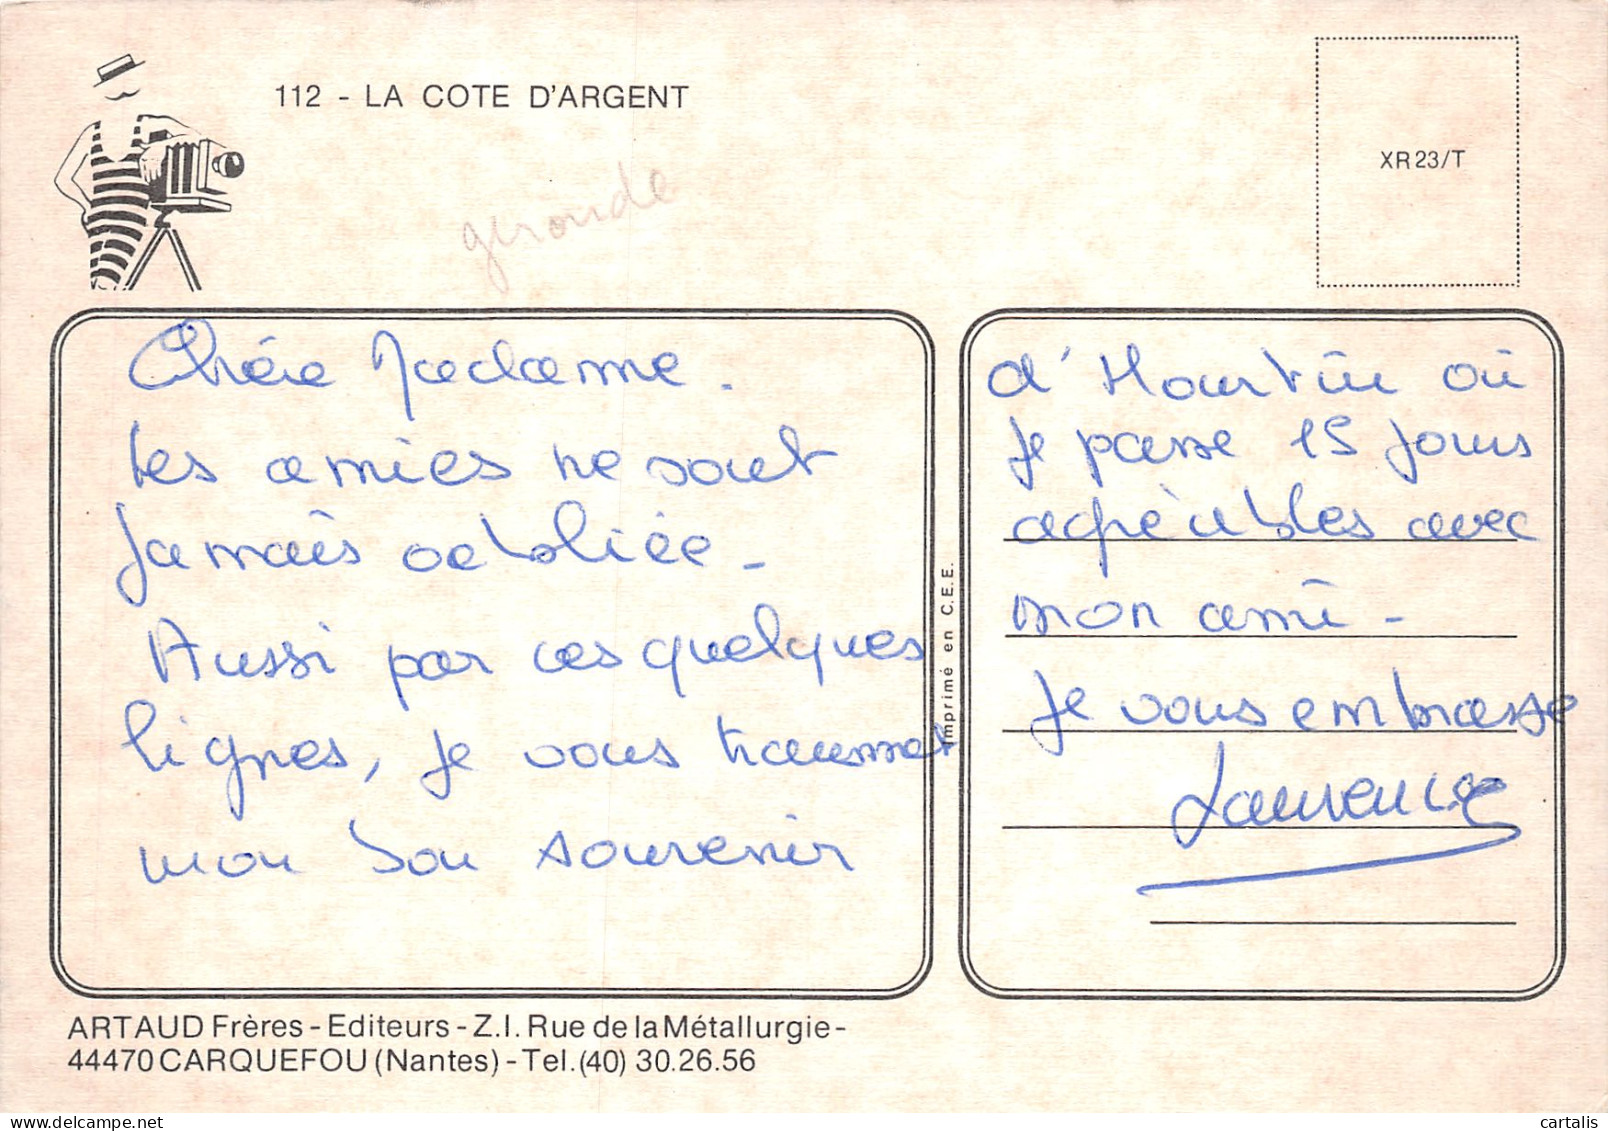 112 - LA COTE D'ARGENT
XR23/T
gironde
Chère Madame.
Les amies ne sont
jamais oubliée -
Aussi par ces quelques
lignes, je vous transmet
mon bon souvenir
Imprimé en C.E.E.
d'Hourtin où
je passe 15 jours
agréables avec
mon ami -
Je vous embrasse
Laurence
ARTAUD Frères - Editeurs - Z.I. Rue de la Métallurgie -
44470 CARQUEFOU (Nantes) - Tel. (40) 30.26.56
cartalis
www.delcampe.net